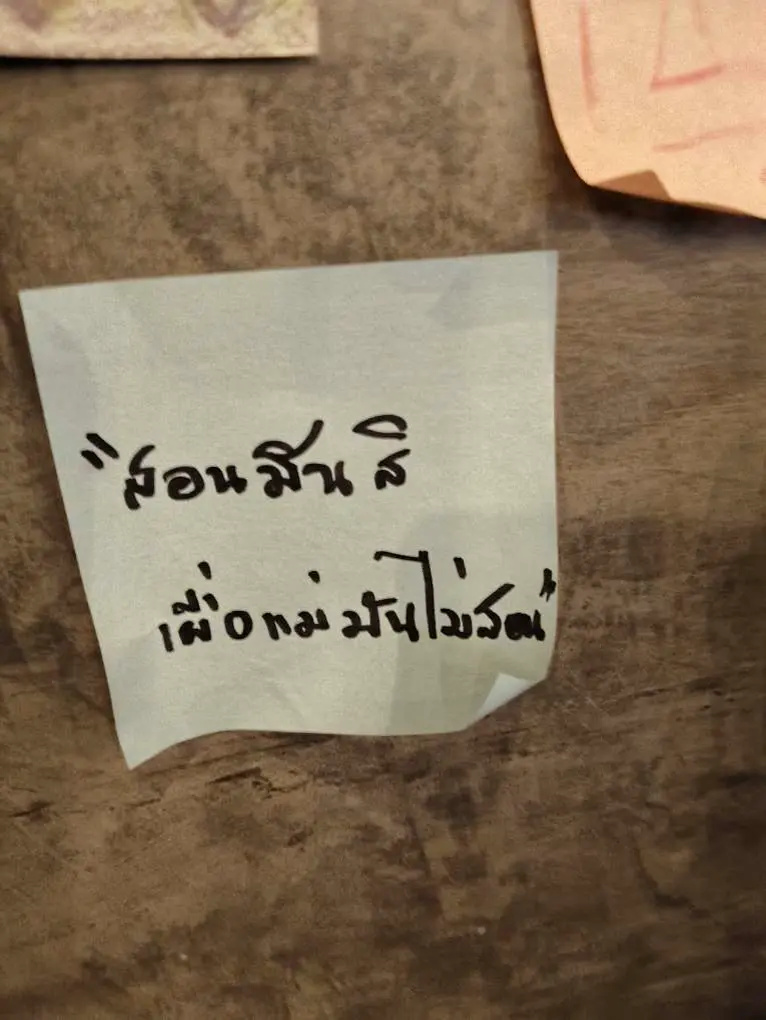 "สอนมันสิ
เผื่อแม่มันไม่สอน"